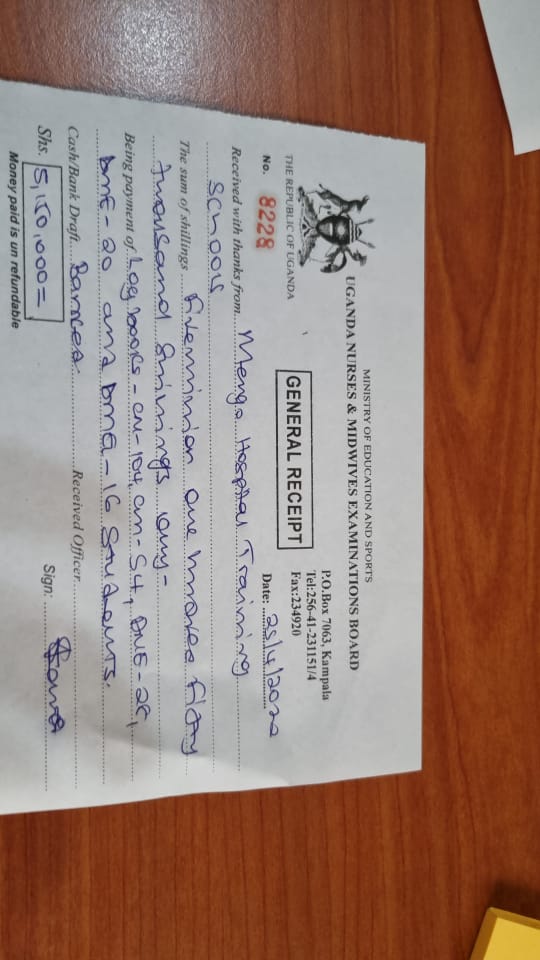 MINISTRY OF EDUCATION AND SPORTS
UGANDA NURSES & MIDWIVES EXAMINATIONS BOARD
P.O.Box 7063, Kampala
Tel:256-41-231151/4
Fax:234920
THE REPUBLIC OF UGANDA
GENERAL RECEIPT
No. 8228
Date: 25/4/2022
Received with thanks from Mengo Hospital Training
School
The sum of shillings Five million one hundred fifty
thousand shillings only-
Being payment of Log books - CN-104, CM-54,
DME-20 and DMG-16 Students.
Cash/Bank Draft Received Officer
Shs. 5,150,000= Sign:
Money paid is un refundable